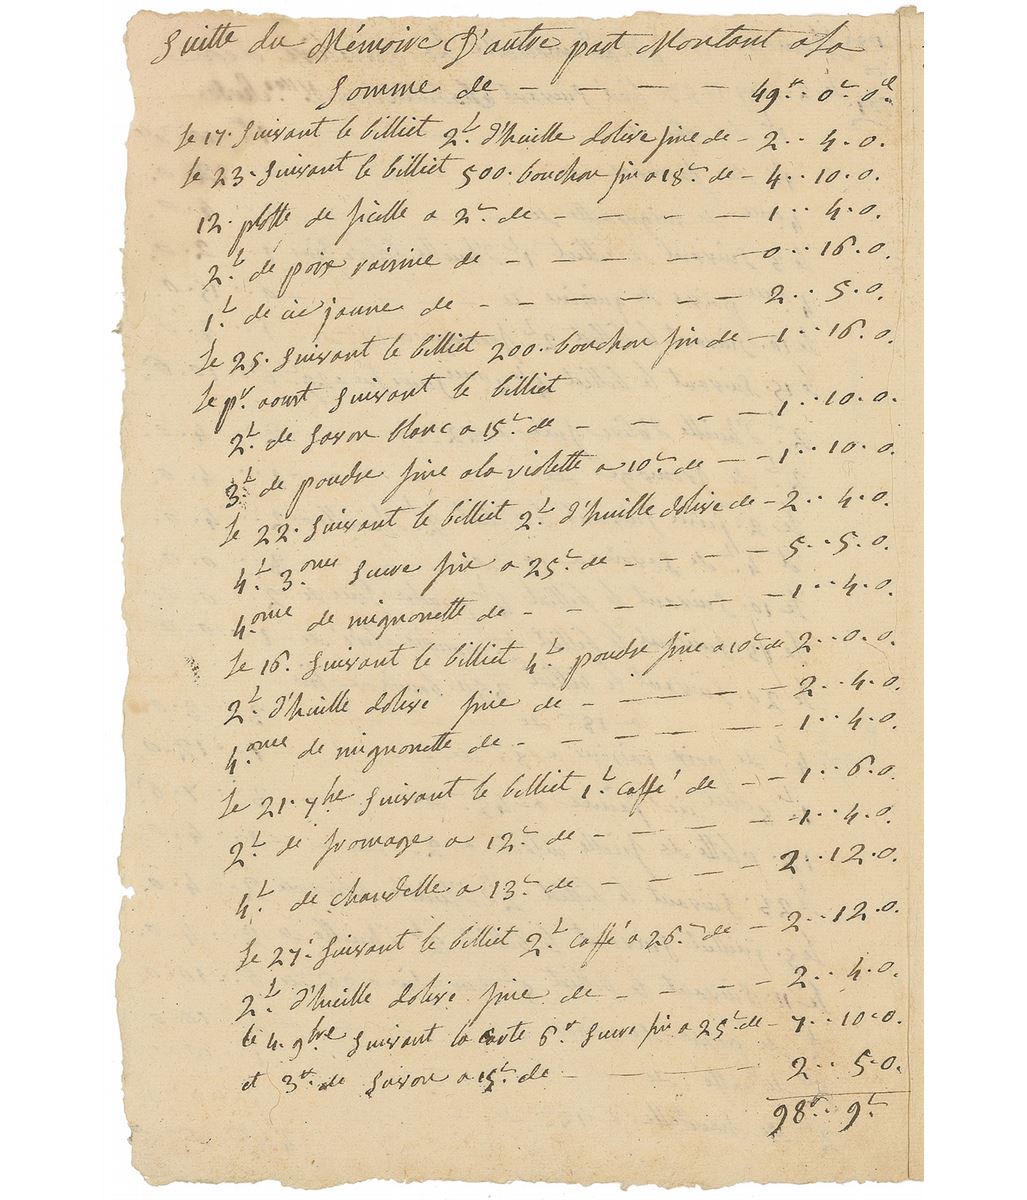 Suitte du Mémoire D'autre part Montant a la
Somme de — — — — 49# .. 0s .. 0d
Le 17. Suivant le billiet 2L. d'huille dolive fine de - 2 .. 4 . 0.
Le 23. Suivant le billiet 500. bouchon fin a 18s. de - 4 .. 10 . 0.
12. plotte de ficelle a 2s. de - - - - 1 .. 4 . 0.
2L. de poix raisine de - - - - - 0 .. 16 . 0.
1L. de cie jaune de - - - - - - 2 .. 5 . 0.
Le 25. Suivant le billiet 200. bouchon fin de - 1 .. 16 . 0.
Le pr. aoust Suivant le billiet
2L. de Savon blanc a 15s. de - - - - 1 .. 10 . 0.
3L. de poudre fine a la violette a 10s. de - - 1 .. 10 . 0.
Le 22. Suivant le billiet 2L. d'huille dolive de - 2 .. 4 . 0.
4L. 3.onces Sucre fin a 25s. de - - - 5 .. 5 . 0.
4.once de mignonette de - - - - - 1 .. 4 . 0.
Le 16. Suivant le billiet 4L. poudre fine a 10s. de 2 .. 0 . 0.
2L. d'huille dolive fine de - - - - 2 .. 4 . 0.
4.once de mignonette de - - - - - 1 .. 4 . 0.
Le 21. 7bre Suivant le billiet 1L. caffé de - - 1 .. 6 . 0.
2L. de fromage a 12s. de - - - - - 1 .. 4 . 0.
4L. de chandelle a 13s. de - - - - 2 .. 12 . 0.
Le 27. Suivant le billiet 2L. caffé a 26s. de - 2 .. 12 . 0.
2L. d'huille dolive fine de - - - - 2 .. 4 . 0.
le 4. 9bre Suivant la carte 6# Sucre fin a 25s de - 7 .. 10 . 0.
et 3# de Savon a 15s. de - - - - 2 .. 5 . 0.
98# .. 9s.